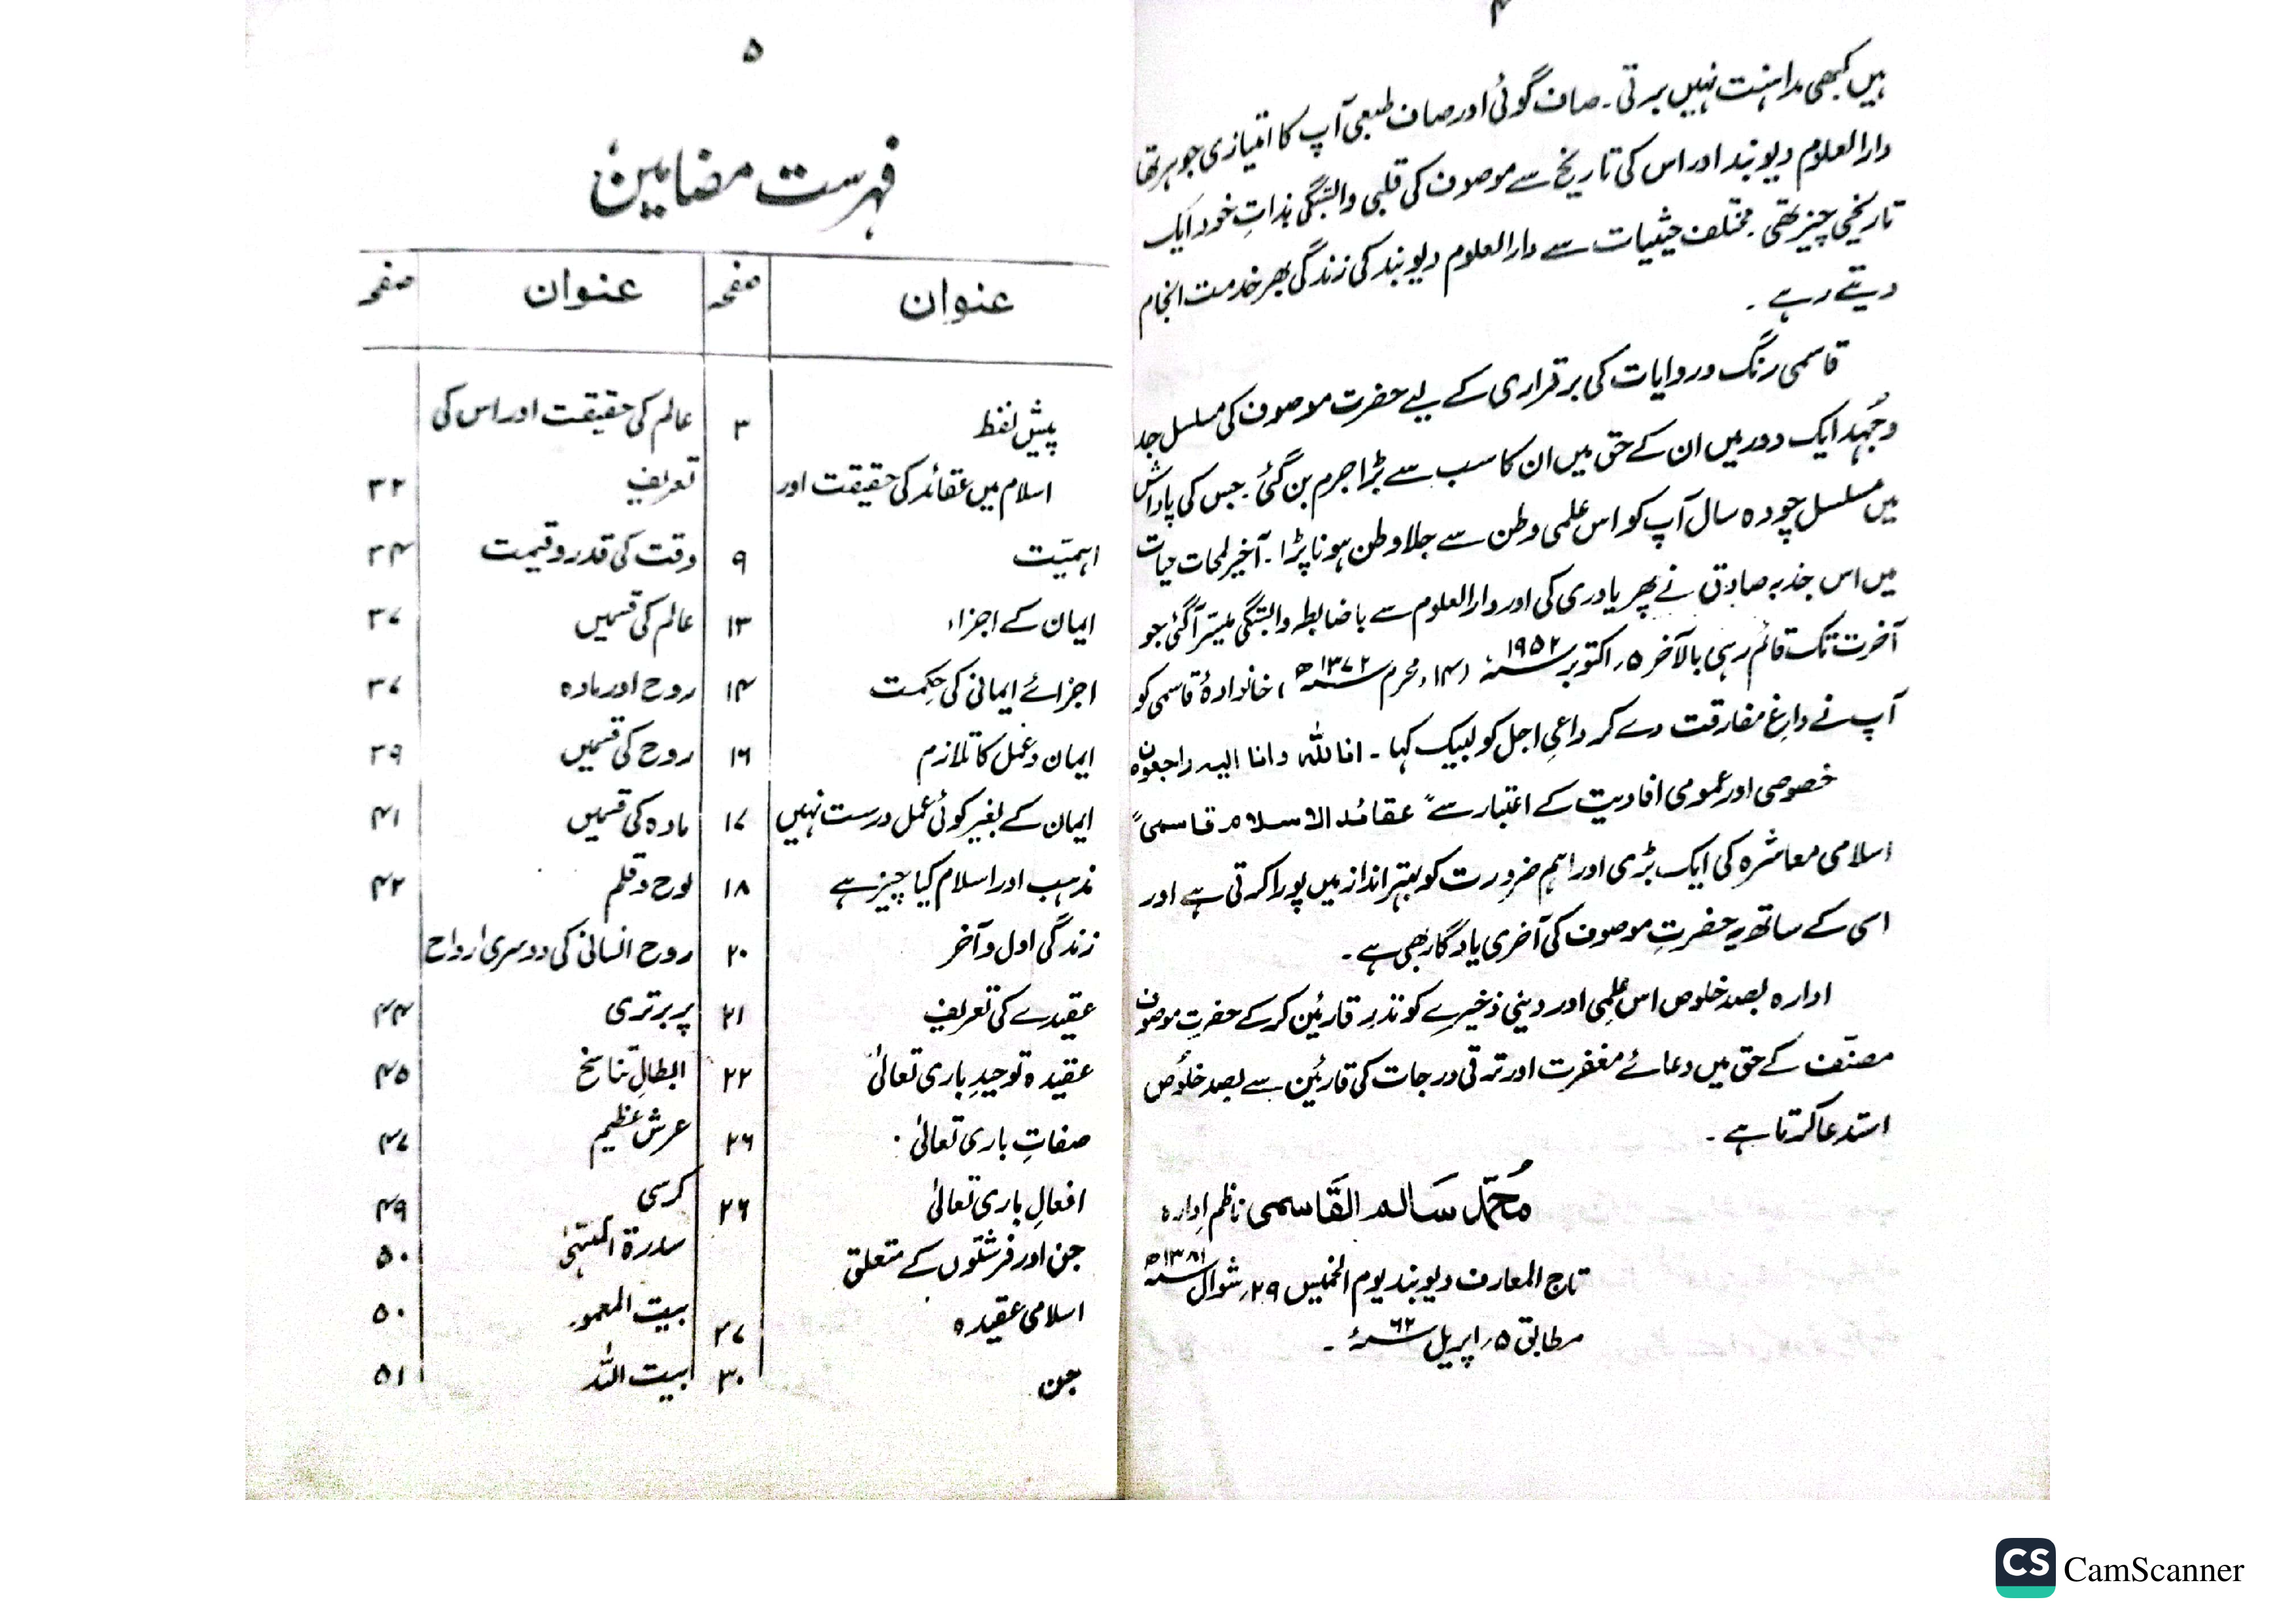 ۴
ہیں کبھی مداہنت نہیں برتی۔ صاف گوئی اور صاف طبعی آپ کا امتیازی جوہر تھا
دارالعلوم دیوبند اور اس کی تاریخ سے موصوف کی قلبی وابستگی بذاتِ خود ایک
تاریخی چیز تھی۔ مختلف حیثیات سے دارالعلوم دیوبند کی زندگی بھر خدمت انجام
دیتے رہے۔
قاسمی رنگ و روایات کی برقراری کے لیے حضرت موصوف کی مسلسل جد
وجُہد ایک دور میں ان کے حق میں ان کا سب سے بڑا جرم بن گئی۔ جس کی پاداش
میں مسلسل چودہ سال آپ کو اس علمی وطن سے جلا وطن ہونا پڑا۔ آخیر لمحات حیات
میں اس جذبہ صادق نے پھر یاوری کی اور دارالعلوم سے باضابطہ وابستگی میسّر آگئی جو
آخرت تک قائم رہی بالآخر ۵؍ اکتوبر ۱۹۵۲ء (۱۴؍ محرم ۱۳۷۲ھ) خانوادۂ قاسمی کو
آپ نے داغِ مفارقت دے کر داعیِ اجل کو لبیک کہا۔ انا للہ وانا الیہ راجعون
خصوصی اور عمومی افادیت کے اعتبار سے "عقائد الاسلام قاسمی"
اسلامی معاشرہ کی ایک بڑی اور اہم ضرورت کو بہتر انداز میں پورا کرتی ہے اور
اسی کے ساتھ یہ حضرتِ موصوف کی آخری یادگار بھی ہے۔
ادارہ بصد خلوص اس علمی اور دینی ذخیرے کو نذرِ قارئین کرکے حضرتِ موصوف
مصنّف کے حق میں دعائے مغفرت اور ترقی درجات کی قارئین سے بصد خلوص
استدعا کرتا ہے۔
مُحمّد سَالم القَاسمی ناظم اِدارہ
تاج المعارف دیوبند یوم الخمیس ۲۹؍ شوال ۱۳۸۱ھ
مطابق ۵؍ اپریل ۶۲ء۔
۵
فہرست مضامین
عنوان صفحہ عنوان صفحہ
پیش لفظ ۳
اسلام میں عقائد کی حقیقت اور
اہمیّت ۹
ایمان کے اجزاء ۱۳
اجزائے ایمانی کی حِکمت ۱۴
ایمان و عمل کا تلازم ۱۶
ایمان کے بغیر کوئی عمل درست نہیں ۱۷
مذہب اور اسلام کیا چیز ہے ۱۸
زندگی اول و آخر ۲۰
عقیدے کی تعریف ۲۱
عقیدہ توحیدِ باری تعالیٰ ۲۲
صفاتِ باری تعالیٰ ۲۶
افعالِ باری تعالیٰ ۲۶
جن اور فرشتوں کے متعلق
اسلامی عقیدہ ۲۷
جن ۳۰
عالم کی حقیقت اور اس کی
تعریف ۳۲
وقت کی قدر و قیمت ۳۴
عالم کی قسمیں ۳۷
روح اور مادہ ۳۷
روح کی قسمیں ۳۹
مادہ کی قسمیں ۴۱
لوح و قلم ۴۲
روح انسانی کی دوسری ارواح
پر برتری ۴۴
ابطالِ تناسخ ۴۵
عرش عظیم ۴۷
کرسی ۴۹
سدرۃ المنتہیٰ ۵۰
بیت المعمور ۵۰
بیت اللہ ۵۱
CS CamScanner